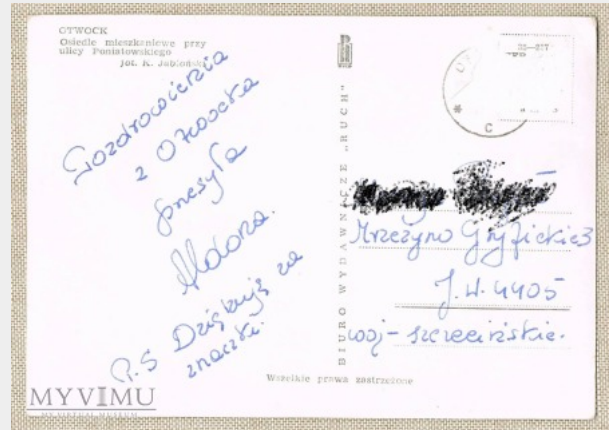 OTWOCK
Osiedle mieszkaniowe przy
ulicy Poniatowskiego
fot. K. Jabłoński
Pozdrowienia
z Otwocka
przesyła
Aldona.
P.S Dziękuję za
znaczki.
BIURO WYDAWNICZE „RUCH"
C
Mrzeżyno Gryfickie 3
J.W. 4405
woj - szczecińskie.
Wszelkie prawa zastrzeżone
MYVIMU
MY VIRTUAL MUSEUM